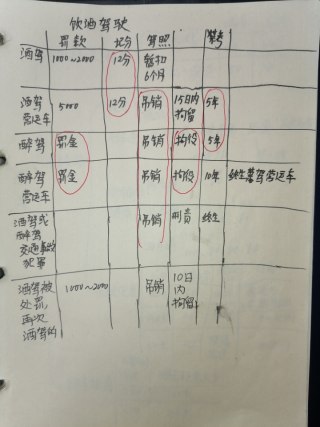 饮酒驾驶
罚款 记分 驾照 禁考
酒驾 1000~2000 12分 暂扣6个月
酒驾营运车 5000 12分 吊销 15日内拘留 5年
醉驾 罚金 吊销 拘役 5年
醉驾营运车 罚金 吊销 拘役 10年 终生禁驾营运车
酒驾或醉驾交通事故犯罪 吊销 刑责 终生
酒驾被处罚再次酒驾的 1000~2000 吊销 10日内拘留